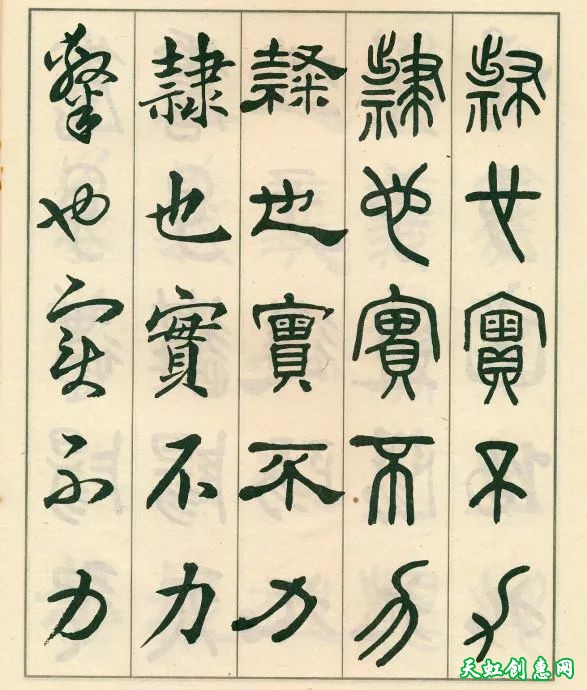 隸也實不力
隸也實不力
隸也實不力
隸也實不力
隸也實不力
天虹创意网